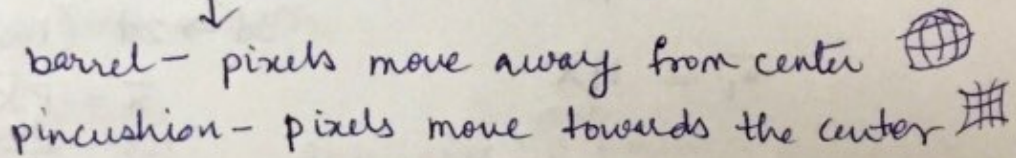 barrel - pixels move away from center
pincushion - pixels move towards the center